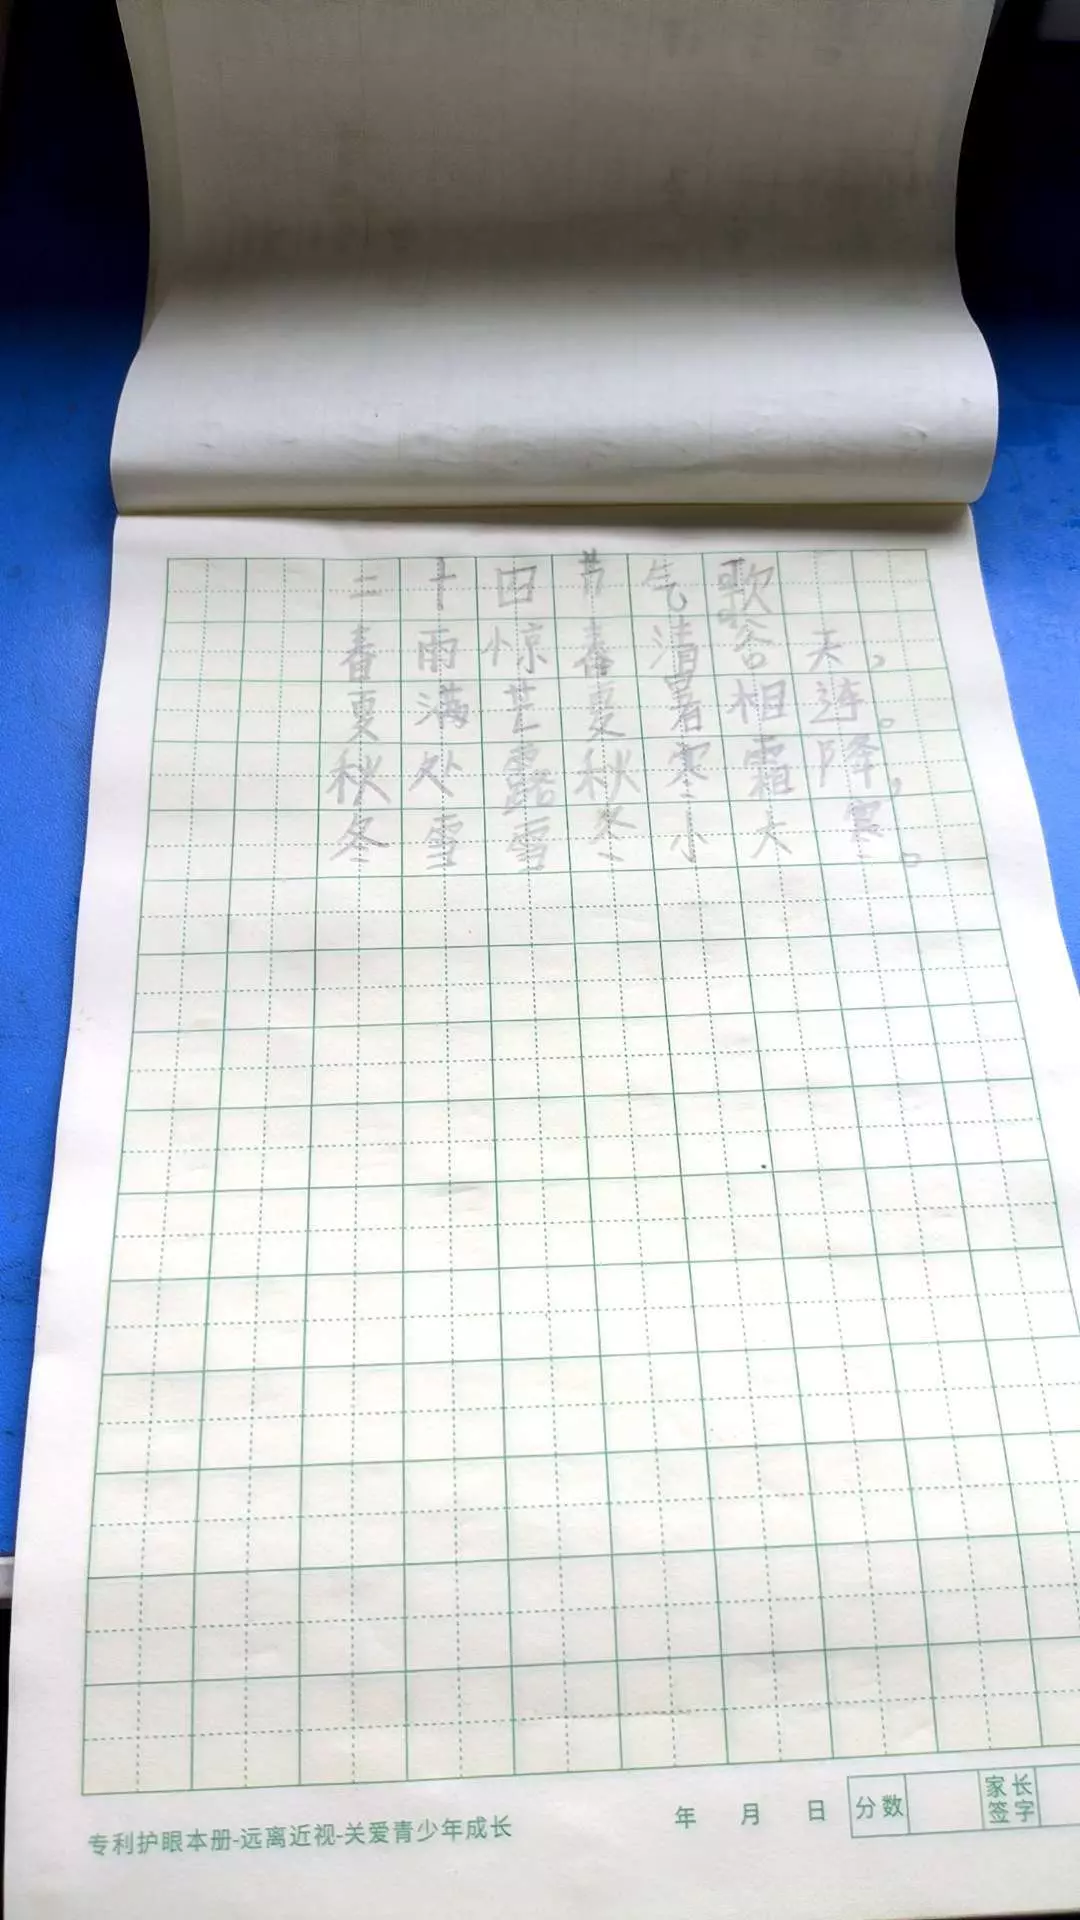 二十四节气歌
春雨惊春清谷天，
夏满芒夏暑相连。
秋处露秋寒霜降，
冬雪雪冬小大寒。
专利护眼本册-远离近视-关爱青少年成长
年 月 日 分数 家长签字